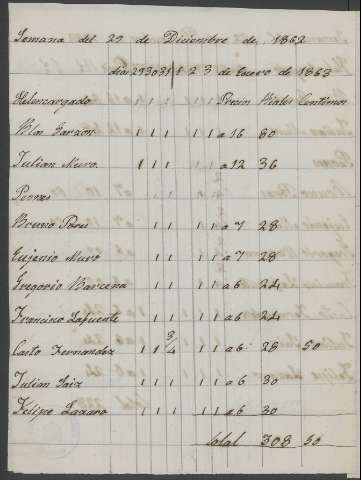 Semana del 29 de Diciembre de 1862
dias 29 30 31 1 2 3 de Enero de 1863
Precios Riales Centimos
Blas Garzon 1 1 1 1 1 a 16 80
Julian Muro 1 1 1 a 12 36
Peones
Bruno Pares 1 1 1 1 a 7 28
Eugenio Muro 1 1 1 1 a 7 28
Gregorio Barcena 1 1 1 1 a 6 24
Francisco Lafuente 1 1 1 1 a 6 24
Casto Fernandez 1 1 3/4 1 1 a 6 28 50
Julian Saiz 1 1 1 1 1 a 6 30
Felipe Lazaro 1 1 1 1 1 a 6 30
total 308 50